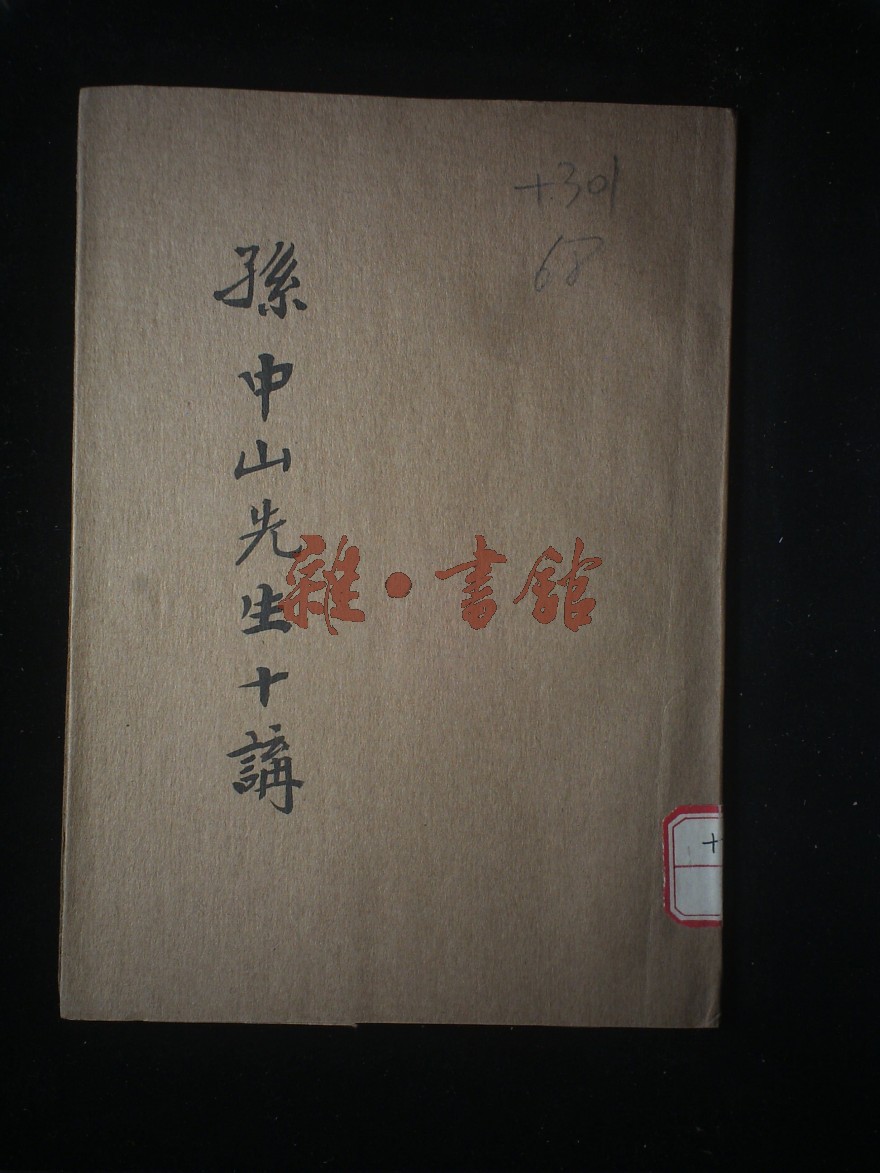 +301
68
孫中山先生十講
雜·書館
+